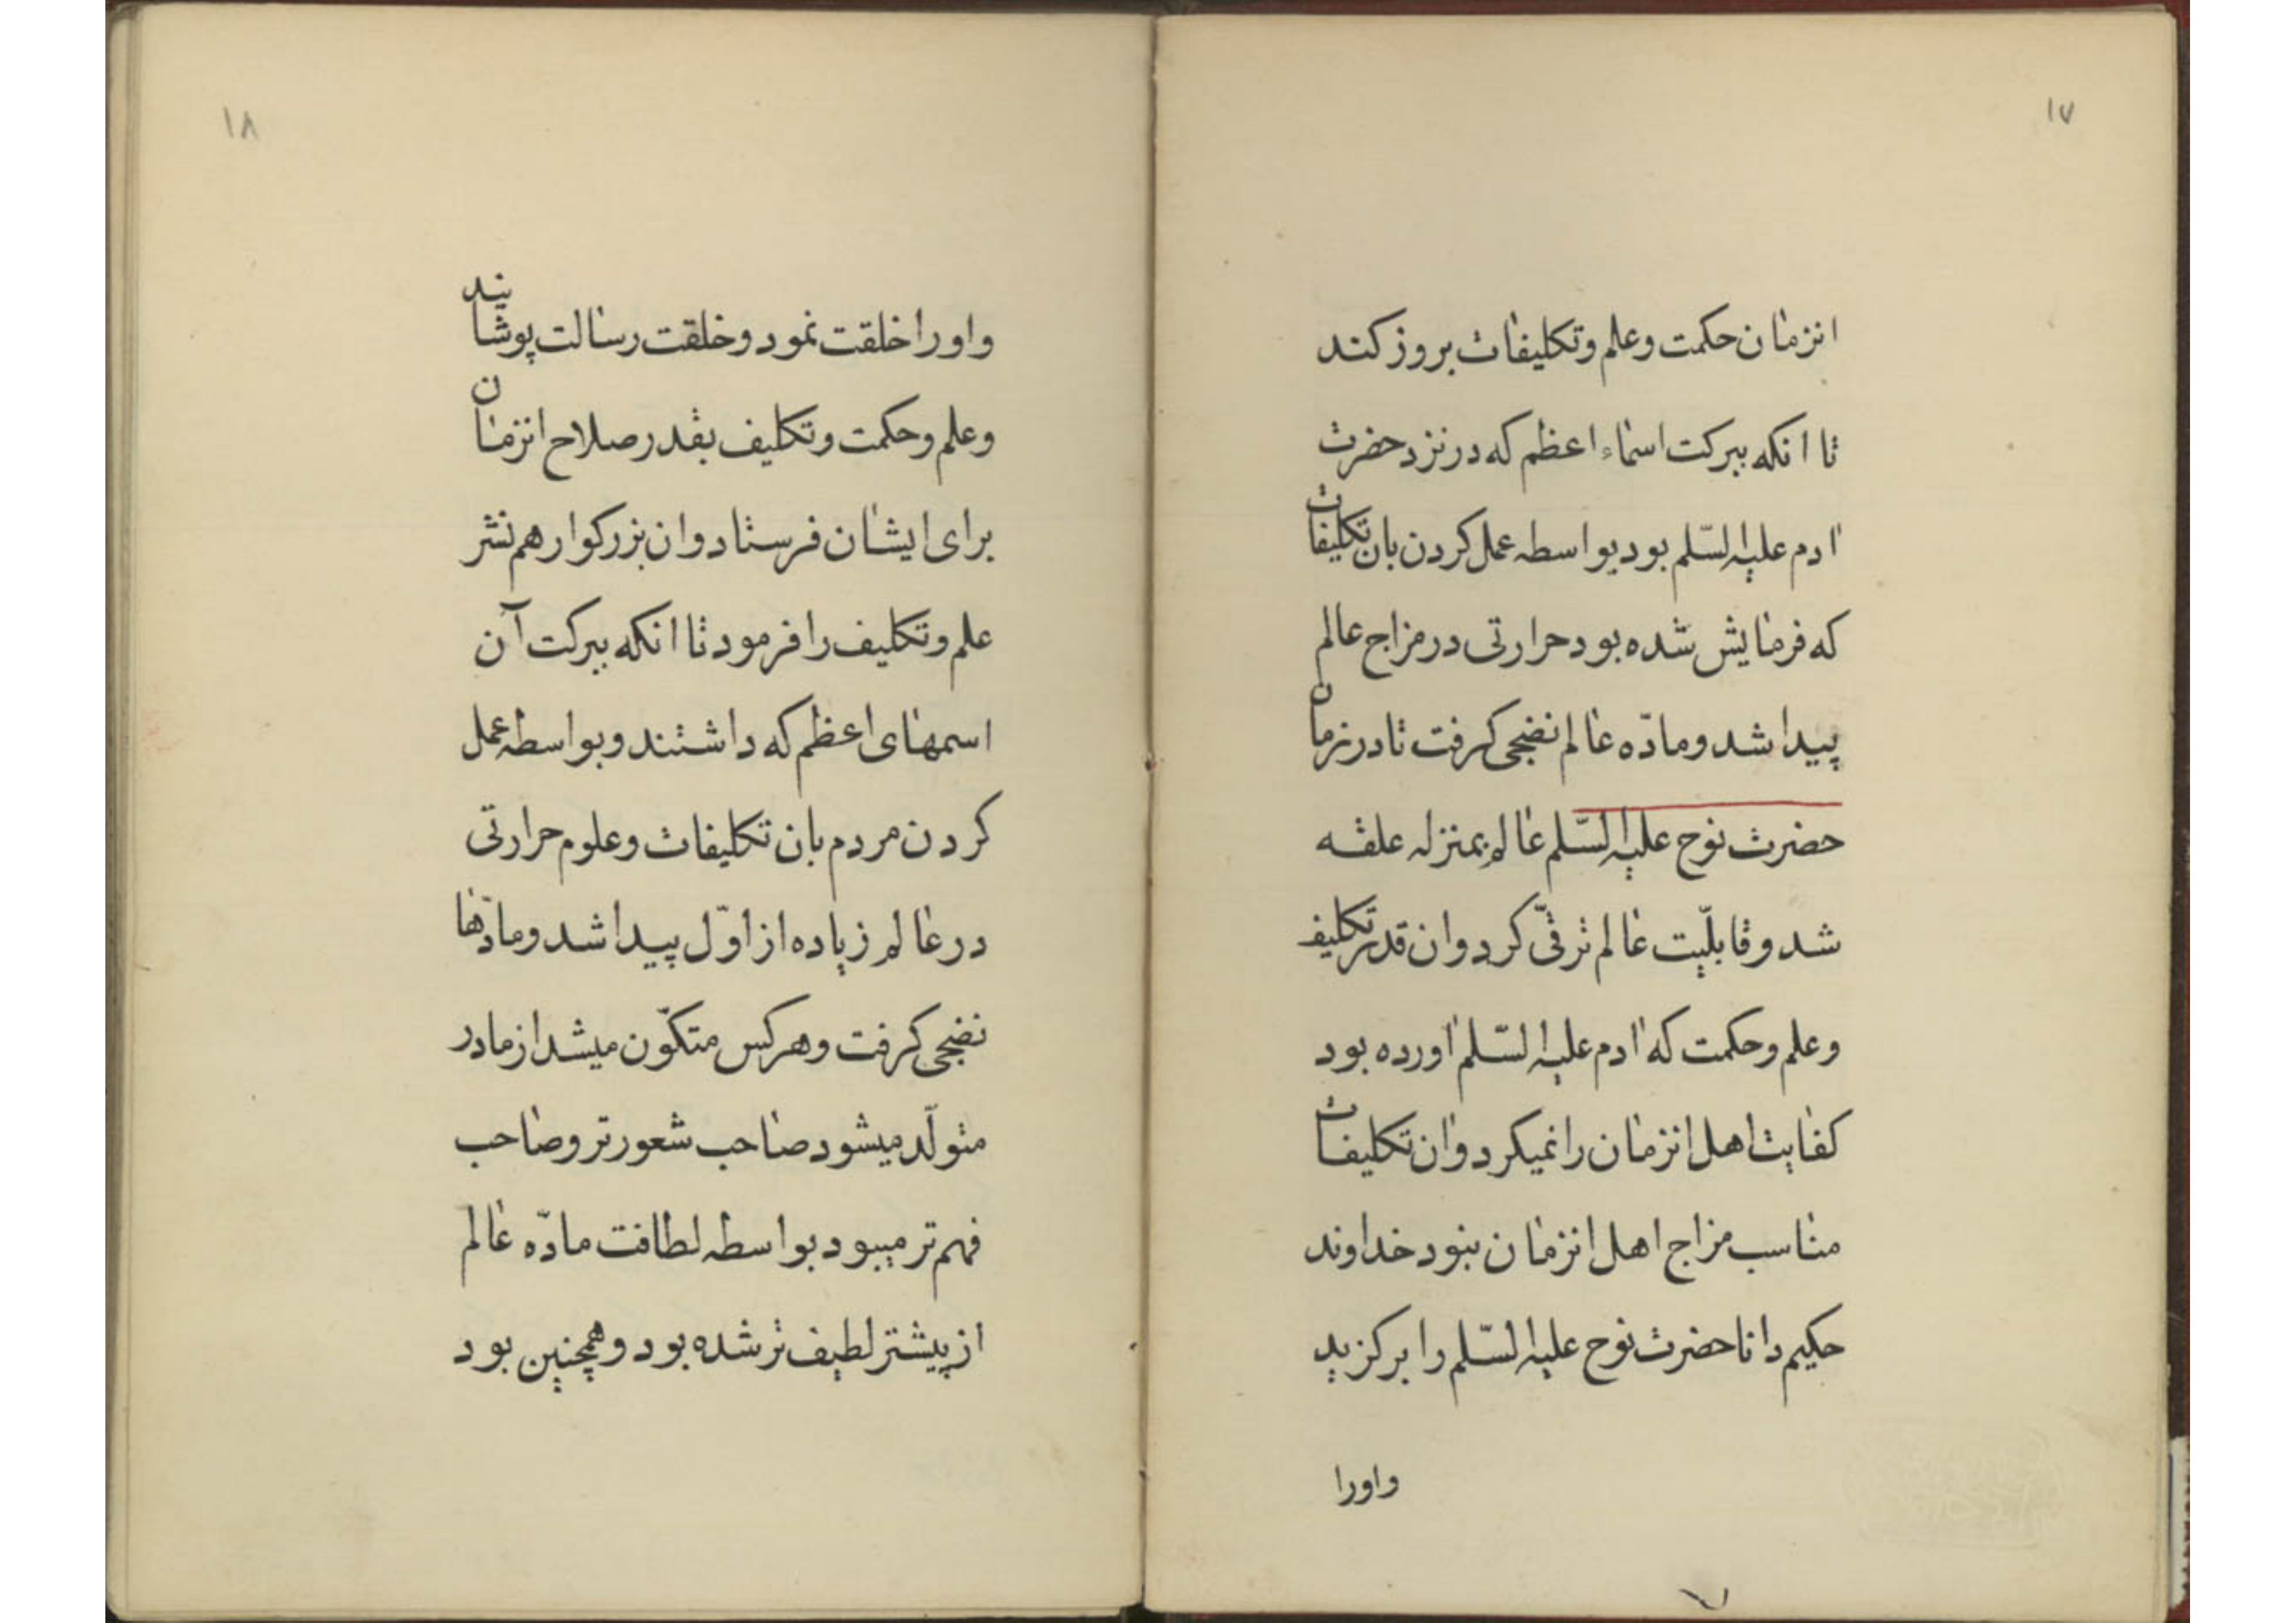 ۱۷
انزمان حکمت وعلم وتکلیفات بروز کند
تا انکه ببرکت اسماء اعظم که در نزد حضرت
ادم علیه السّلم بود بواسطه عمل کردن بان تکلیفات
که فرمایش شده بود حرارتی در مزاج عالم
پیدا شد و مادّه عالم نضجی کرفت تا در زمان
حضرت نوح علیه السّلم عالم بمنزله علقه
شد و قابلیّت عالم ترقّی کرد وان قدر تکلیف
وعلم وحکمت که ادم علیه السّلم اورده بود
کفایت اهل انزمان را نمیکرد وان تکلیفات
مناسب مزاج اهل انزمان نبود خداوند
حکیم دانا حضرت نوح علیه السّلم را برکزید
واورا
۱۸
واورا خلقت نمود و خلقت رسالت پوشانید
وعلم وحکمت وتکلیف بقدر صلاح انزمان
برای ایشان فرستاد وان بزرکوار هم نشر
علم وتکلیف را فرمود تا انکه ببرکت آن
اسمهای اعظم که داشتند و بواسطه عمل
کردن مردم بان تکلیفات وعلوم حرارتی
در عالم زیاده از اوّل پیدا شد ومادّها
نضجی کرفت وهر کس متکوّن میشد از مادر
متولّد میشود صاحب شعورتر وصاحب
فهم تر میبود بواسطه لطافت مادّه عالم
از پیشتر لطیف تر شده بود و همچنین بود